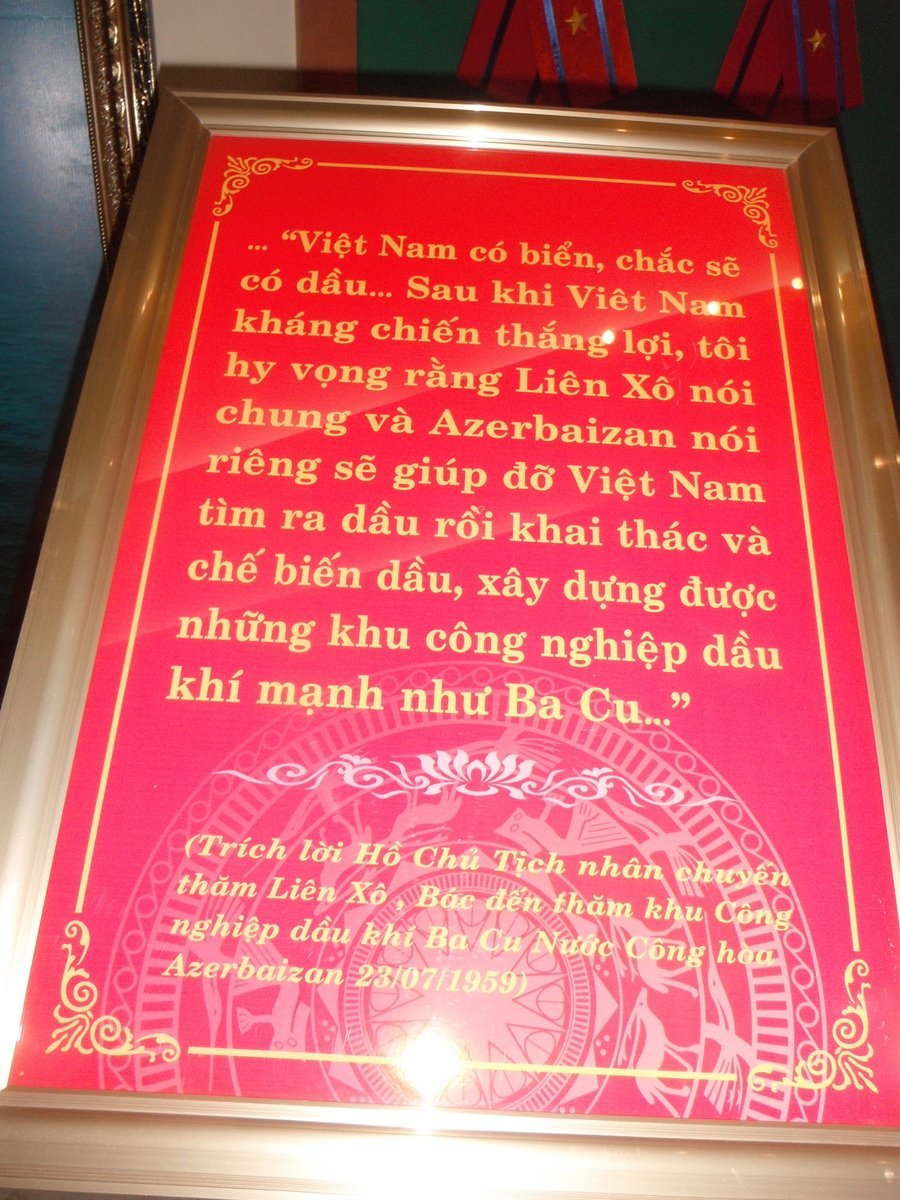 ... “Việt Nam có biển, chắc sẽ
có dầu... Sau khi Việt Nam
kháng chiến thắng lợi, tôi
hy vọng rằng Liên Xô nói
chung và Azerbaizan nói
riêng sẽ giúp đỡ Việt Nam
tìm ra dầu rồi khai thác và
chế biến dầu, xây dựng được
những khu công nghiệp dầu
khí mạnh như Ba Cu...”
(Trích lời Hồ Chủ Tịch nhân chuyến
thăm Liên Xô , Bác đến thăm khu Công
nghiệp dầu khí Ba Cu Nước Công hòa
Azerbaizan 23/07/1959)